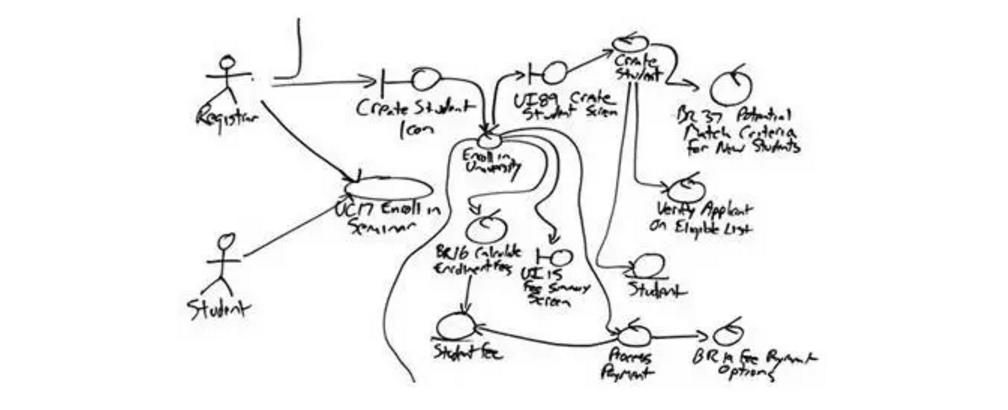 Registrar
Create Student
Icon
UI89 Create
Student Screen
Create
Student
BR 37 Potential
Match Criteria
for New Students
Enroll in
University
UC17 Enroll in
Seminar
Verify Applicant
On Eligible List
BR16 Calculate
Enrolment Fees
UI 15
Fee Summary
Screen
Student
Student
Student Fee
Process
Payment
BR Fee Payment
Options